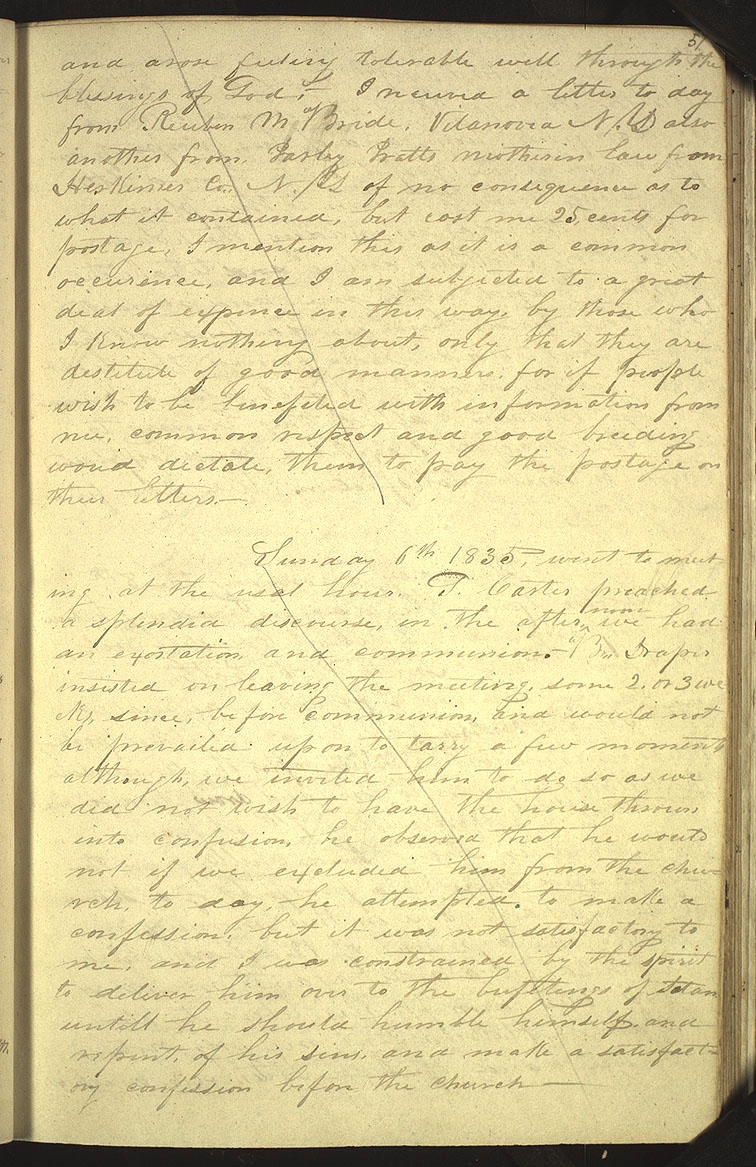 51
and arose feeling tolerable well through the
blessings of God,— I received a letter to day
from Reuben McBride, Vilanovia N.Y also
another from Parley Pratts motherin law from
Herkimer Co. N.Y of no consequence as to
what it contained, but cost me 25, cents for
postage, I mention this as it is a common
occurence, and I am subjected to a great
deal of expence in this way, by those who
I know nothing about, only that they are
destitute of good manners, for if people
wish to be benefited with information from
me, common respect and good breeding
woud dictate, them to pay the postage on
their letters.—
Sunday 6th 1835, went to meet-
ing at the usal hour. G. Carter preached
a splendid discourse, in the after noon we had
an exortation, and communion.— Br. Draper
insisted on leaving the meeting, some 2. or 3 we
ks, since, before communion, and would not
be prevailed upon to tarry a few moments
although, we invited him to do so as we
did not wish to have the house thrown
into confusion, he observed that he would
not if we excluded him from the chu-
rch, to day, he attempted, to make a
confession, but it was not satisfactory to
me, and I was constrained by the spirit
to deliver him over to the bufetings of satan
untill he should humble himself, and
repent, of his sins, and make a satisfact-
ory confession before the church—